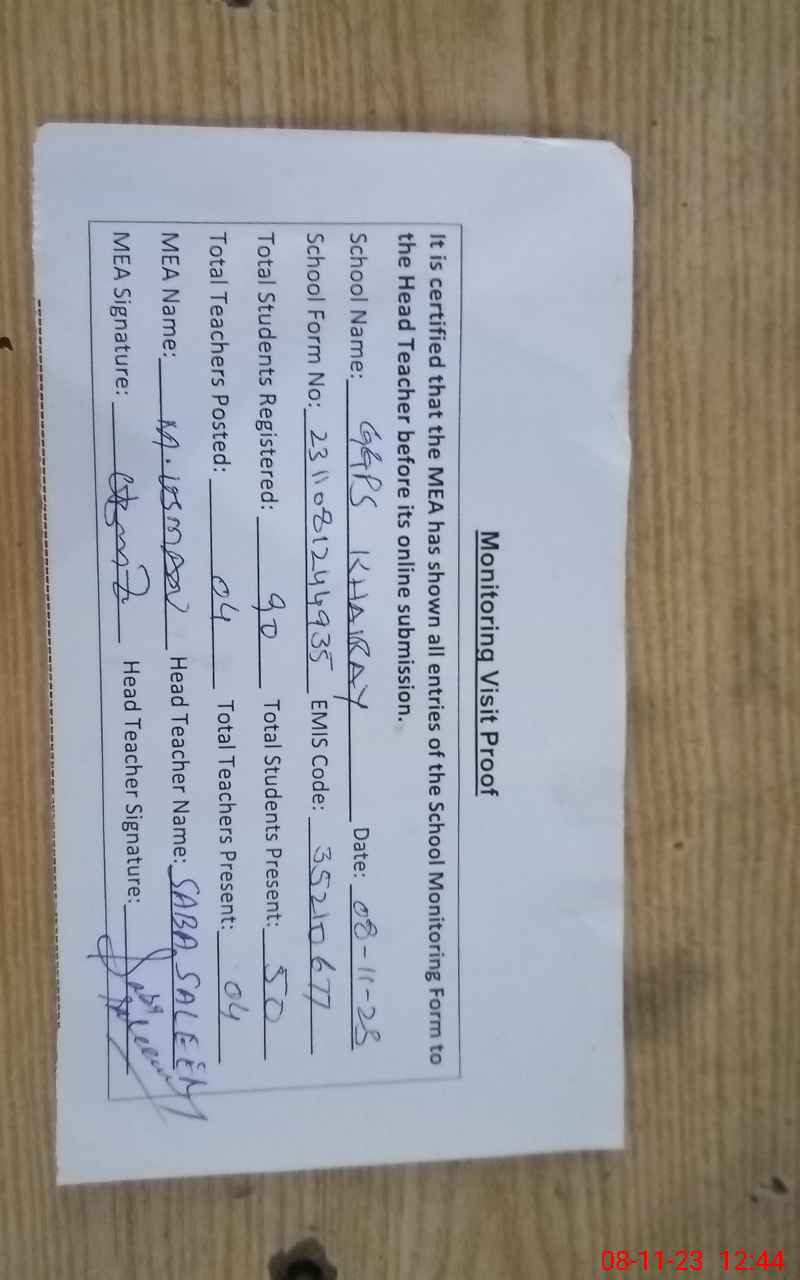 Monitoring Visit Proof
It is certified that the MEA has shown all entries of the School Monitoring Form to
the Head Teacher before its online submission.
School Name: GGPS KHARAY Date: 08-11-23
School Form No: 2311081244935 EMIS Code: 35210677
Total Students Registered: 90 Total Students Present: 50
Total Teachers Posted: 04 Total Teachers Present: 04
MEA Name: M. USMAN Head Teacher Name: SABA SALEEM
MEA Signature: Head Teacher Signature:
08-11-23 12:44